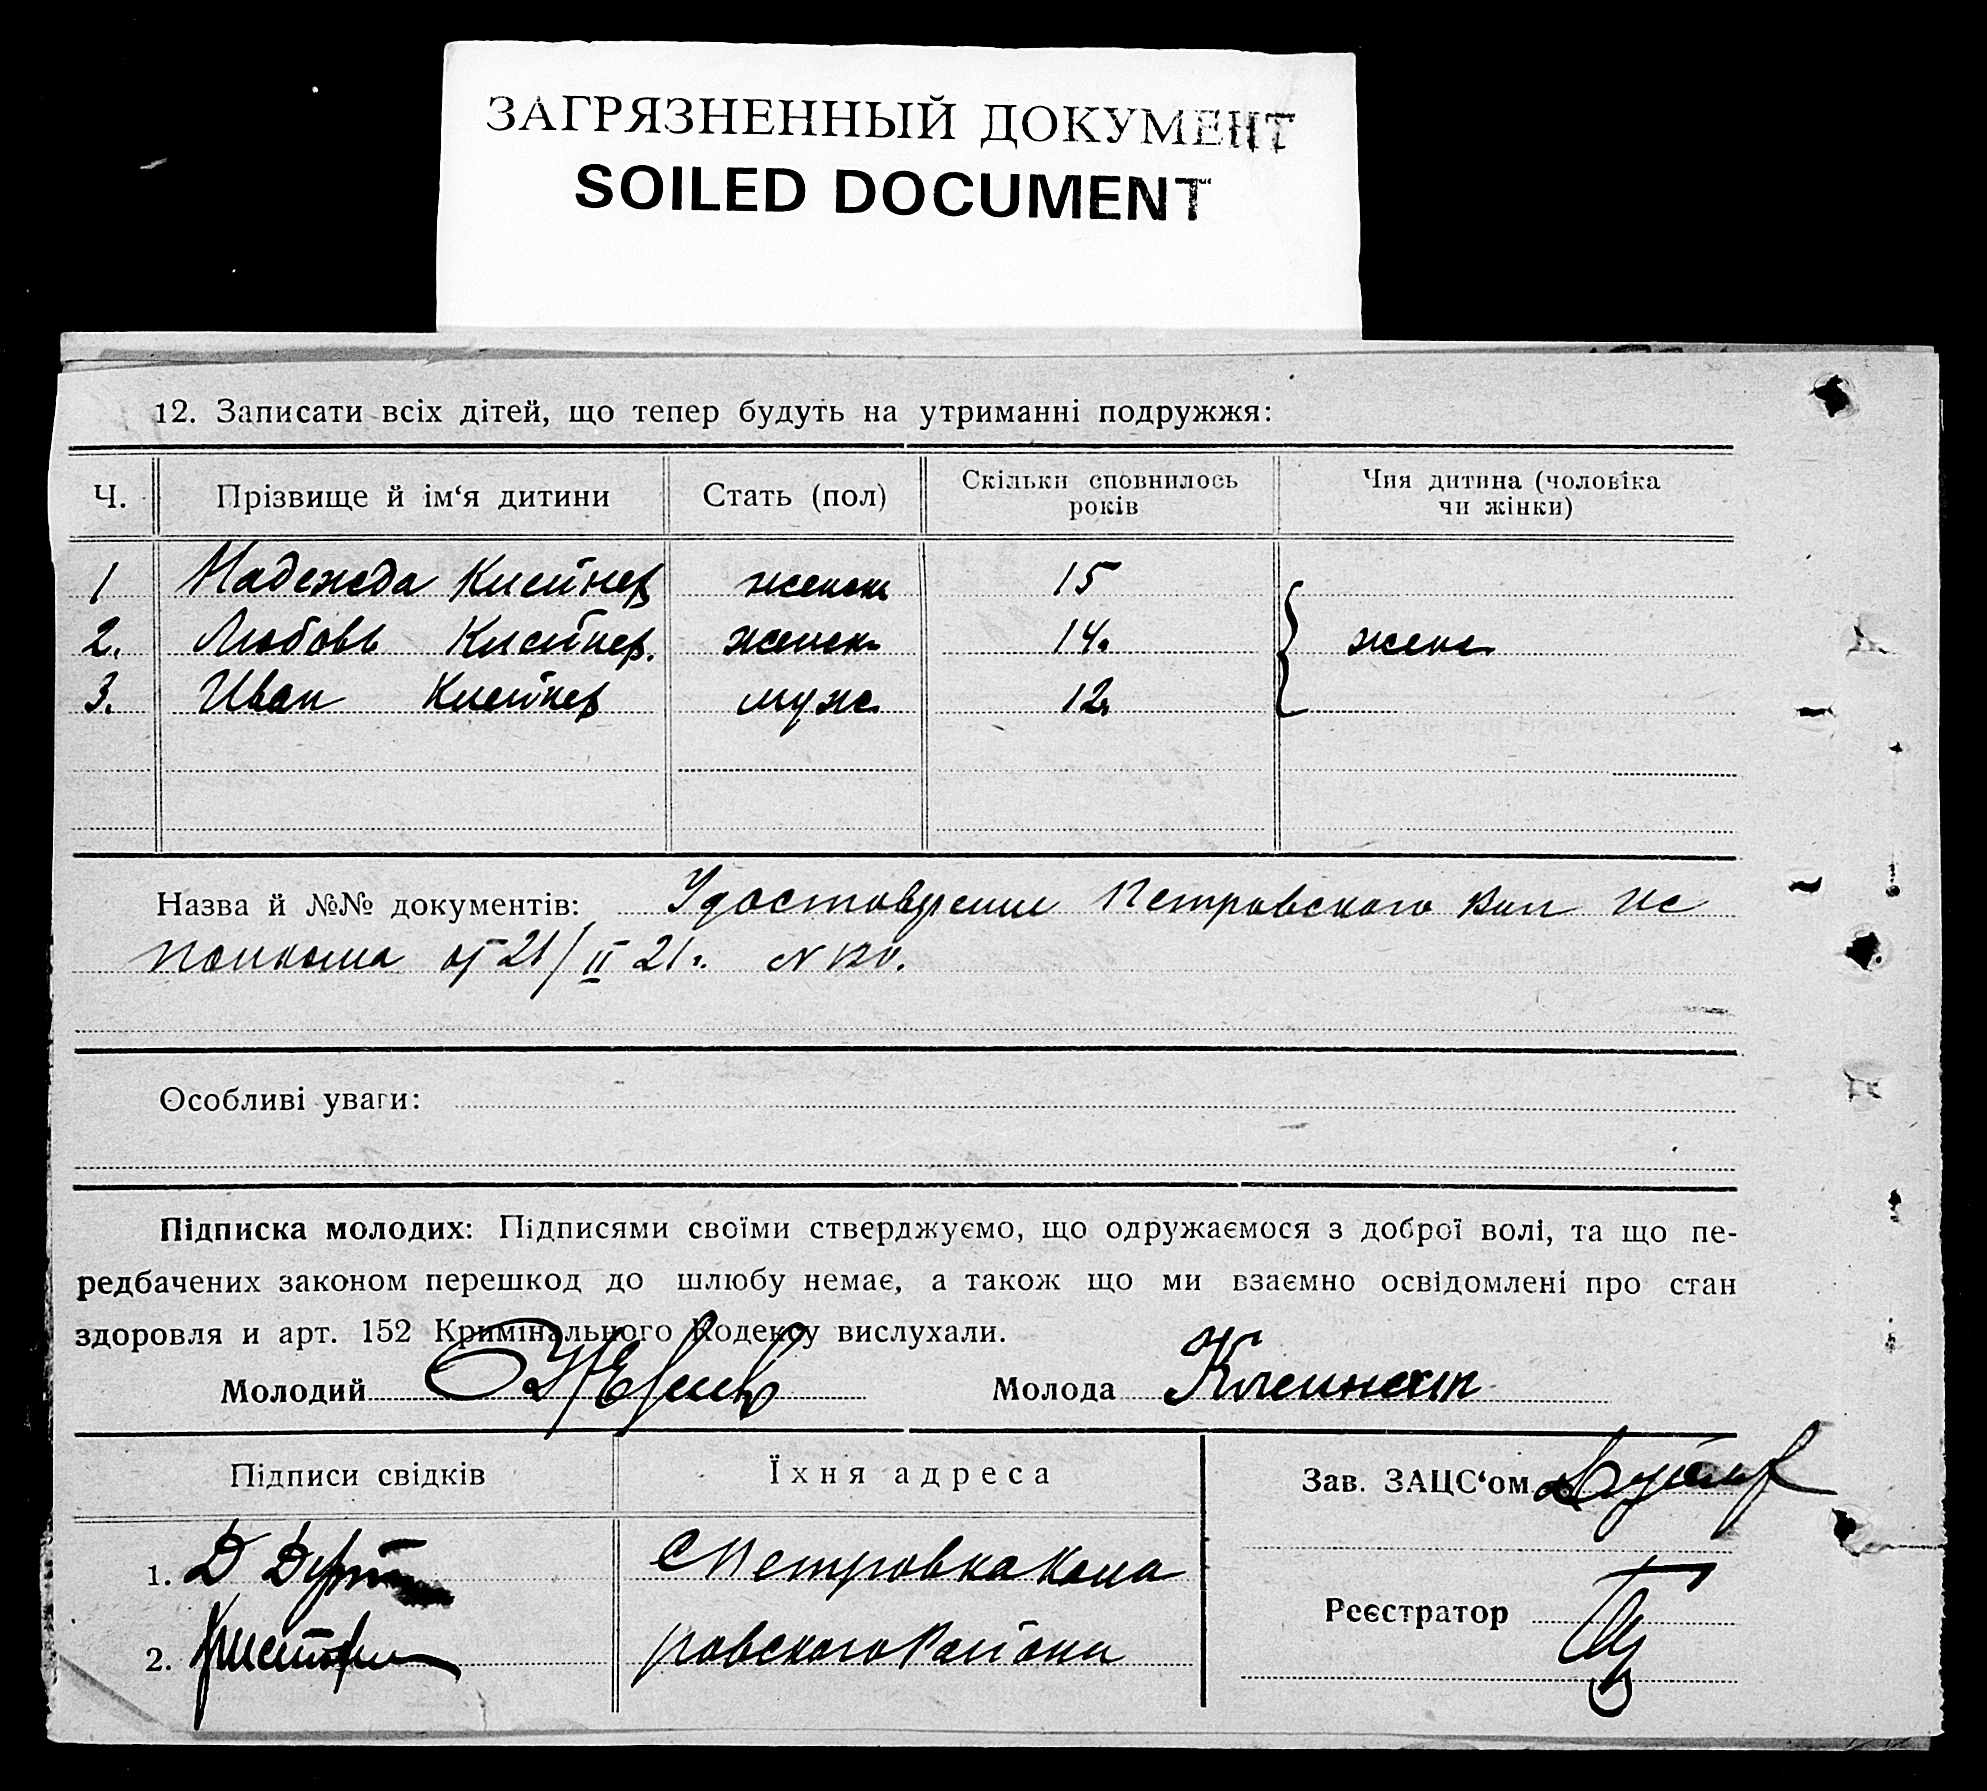 ЗАГРЯЗНЕННЫЙ ДОКУМЕНТ
SOILED DOCUMENT
12. Записати всіх дітей, що тепер будуть на утриманні подружжя:
Ч. Прізвище й ім‘я дитини Стать (пол) Скільки сповнилось років Чия дитина (чоловіка чи жінки)
1 Надежда Киситнер женск 15
2. Любовь Киситнер. женск 14. жене
3. Иван Киситнер муж. 12.
Назва й №№ документів: Удостоврение Петровского Вол Ис
полкома от 21/II 21г. N
Особливі уваги:
Підписка молодих: Підписями своїми стверджуємо, що одружаємося з доброї волі, та що пе-
редбачених законом перешкод до шлюбу немає, а також що ми взаємно освідомлені про стан
здоровля и арт. 152 Кримінального Кодексу вислухали.
Молодий Молода
Підписи свідків Їхня адреса Зав. ЗАЦС‘ом
1. Д С Петровка Кома
Реєстратор
2. ровского Района